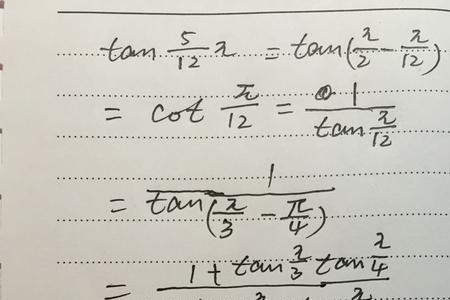 tan 5/12 π = tan(π/2 - π/12)
= cot π/12 = 1/(tan π/12)
= 1/(tan(π/3 - π/4))
= (1 + tan π/3 tan π/4)/